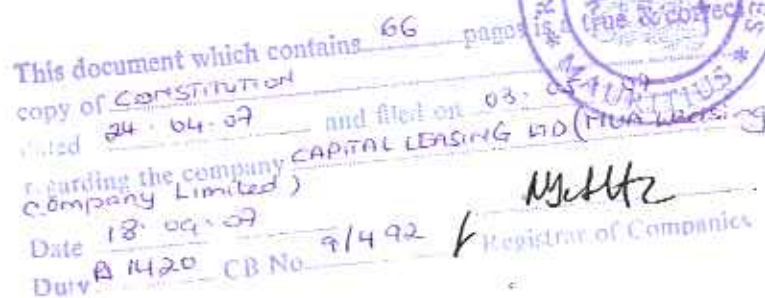 This document which contains 66 pages is a true & correct
copy of CONSTITUTION
dated 24.04.07 and filed on 03.05.07
regarding the company CAPITAL LEASING LTD (MUA Leasing
Company Limited)
Date 18.09.07
Duty R 1420 CB No. 9/4 92 Registrar of Companies
MAURITIUS